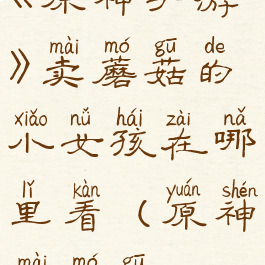 《原神手游
mài mó gū de
》卖蘑菇的
xiǎo nǚ hái zài nǎ
小女孩在哪
lǐ kàn yuán shén
里看（原神
mài mó gū